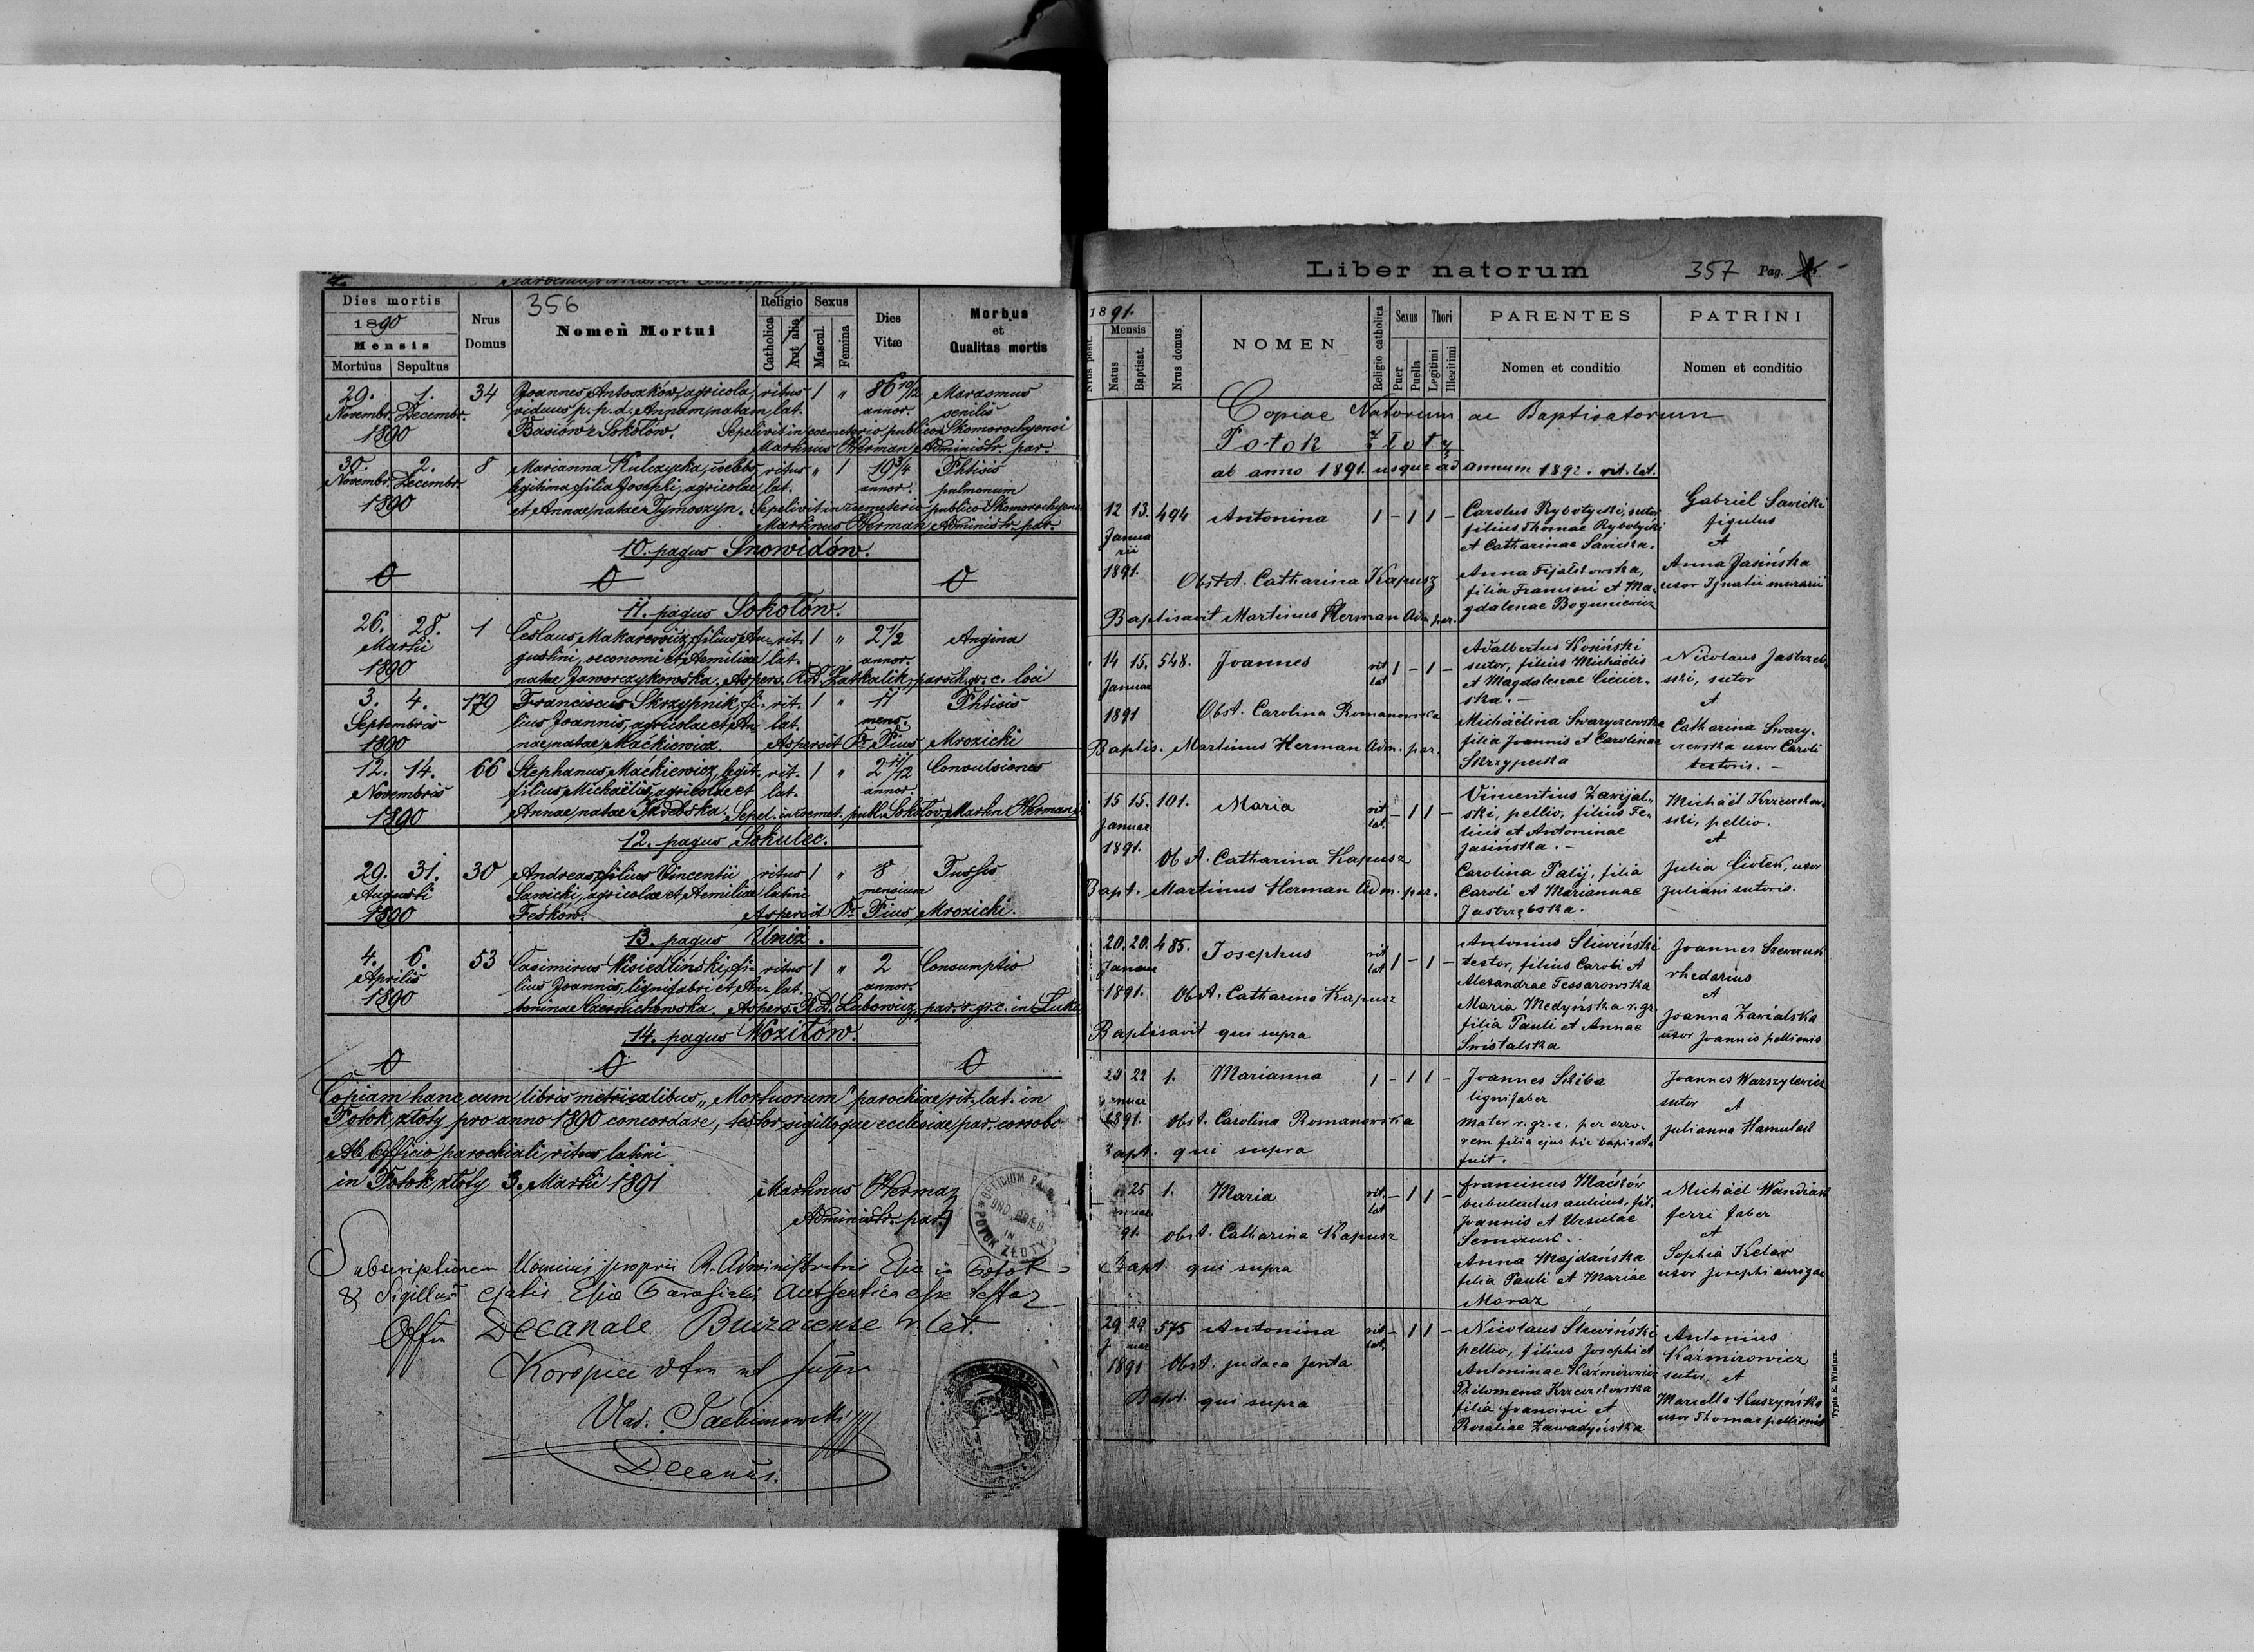 4.
356
Dies mortis
1890
Mensis
Mortuus Sepultus
Nrus Domus
Nomen Mortui
Religio
Catholica
Aut alia
Sexus
Mascul.
Femina
Dies Vitæ
Morbus et Qualitas mortis
29. 1. 34 Joannes Antoszków, agricola, ritus 1 " 86 10/12 Marasmus
Novembr. Decembr. viduus p. p. d. Annam natam lat. annor. senilis
1890 Basiów e Sokołów. Sepelivit in coemeterio publico Skomorochyensi
Martinus Herman Administr. par.
30. 2. 8 Marianna Kulczycka, coelebs ritus " 1 19 3/4 Phtisis
Novembr. Decembr. legitima filia Josephi, agricolae lat. annor. pulmonum
1890 et Annae natae Tymoszyn. Sepelivit in coemeterio publico Skomorochyensi
Martinus Herman Administr. par.
10. pagus Snowidów.
0 0 0
11. pagus Sokołów.
26. 28. 1 Ceslaus Makarewicz, filius Au- rit. 1 " 2 1/2 Angina
Martii gustini, oeconomi et Aemiliae lat. annor.
1890 natae Jaworczykowska. Aspers. R.D. Zatkalik, paroch. gr. c. loci
3. 4. 179 Franciscus Skrzypnik, fi- rit. 1 " 11 Phtisis
Septembris lius Joannis, agricolae et An- lat. mens.
1890 nae natae Maćkiewicz. Aspersit Fr. Pius Mrozicki
12. 14. 66 Stephanus Maćkiewicz, legit. rit. 1 " 2 11/12 Convulsiones
Novembris filius Michaëlis, agricolae et lat. annor.
1890 Annae natae Izdebska. Sepel. in coemet. publ. Sokołov. Martin Herman
12. pagus Sokulec.
29. 31. 30 Andreas, filius Vincentii ritus 1 " 8 Tussis
Augusti Sawicki, agricolae et Aemiliae latini mensium
1890 Feśków. Aspersit Fr. Pius Mrozicki.
13. pagus Uniż.
4. 6. 53 Casimirus Wisiedliński, fi- ritus 1 " 2 Consumptio
Aprilis lius Joannis, lignifabri et An- lat. annor.
1890 toninae Czernichowska. Aspers. R.D. Lubowicz, par. r. gr. c. in Luka
14. pagus Woziłów.
0 0 0
Copiam hanc cum libris metricalibus „Mortuorum" parochiae rit. lat. in
Potok złoty pro anno 1890 concordare, testor sigilloque ecclesiae par. corrobo
Ab Officio parochiali ritus latini
in Potok złoty 3. Martii 1891
Martinus Herman
Administr. par.
OFFICIUM PAR.
IN
POTOK ZŁOTY
Subscriptionem Nominis proprii R. Administratoris Eliae in Potok
& Sigillum Authentica esse testor
Offm Decanale Buczacense r. lat.
Koropiec
Vlad.
Decanus.
Liber natorum
357 Pag.
1891.
Nrus posit.
Mensis
Natus
Baptisat.
Nrus domus
NOMEN
Religio catholica
Sexus
Puer
Puella
Thori
Legitimi
Illegitimi
PARENTES
Nomen et conditio
PATRINI
Nomen et conditio
Copiae Natorum ac Baptisatorum
Potok Złoty
ab anno 1891. usque ad annum 1892. rit. lat.
12 13. 494 Antonina 1 – 1 1 –
Januarii
1891.
Obstet. Catharina Kapusz
Baptisavit Martinus Herman Adm. par.
Carolus Rybotycki, sutor
filius Thomae Rybotycki
et Catharinae Sawicka.
Anna Fijałkowska,
filia Francisci et Ma-
gdalenae Boguniewicz
Gabriel Sawicki
figulus
et
Anna Jasińska
uxor Ignatii murarii
14 15. 548. Joannes rit lat 1 – 1 –
Januar
1891
Obst. Carolina Romanowska
Baptis. Martinus Herman Adm. par.
Adalbertus Kosiński
sutor, filius Michaëlis
et Magdalenae Ciecier-
ska. –
Michaëlina Swaryczewska
filia Joannis et Carolinae
Skrzypecka
Nicolaus Jastrzęb-
ski, sutor
et
Catharina Swary-
czewska uxor Caroli
textoris. –
15 15. 101. Maria rit lat. – 1 1 –
Januar
1891.
Obst. Catharina Kapusz
Bapt. Martinus Herman Adm. par.
Vincentius Zawijal-
ski, pellio, filius Fe-
licis et Antoninae
Jasińska. –
Carolina Palij, filia
Caroli et Mariannae
Jastrzębska.
Michaël Krzeczkow-
ski, pellio.
et
Julia Ciołek, uxor
Juliani sutoris.
20. 20. 485. Josephus rit lat 1 – 1 –
Januar
1891.
Obst. Catharina Kapusz
Baptisavit qui supra
Antonius Śliwiński
textor, filius Caroli et
Alexandrae Tessarowska
Maria Medyńska r. gr
filia Pauli et Annae
Świstalska
Joannes Szewczuk
rhedarius
et
Joanna Zawialska
uxor Joannis pellionis
22 1. Marianna 1 – 1 1 –
1891. Obst. Carolina Romanowska
Bapt. qui supra
Joannes Skiba
lignifaber
Mater r. gr. c. per erro-
rem filia ejus hic bapisata
fuit. –
Joannes Warszylewicz
sutor
et
Julianna Hamulak
25 1. Maria rit. lat – 1 1 –
91. obst. Catharina Kapusz
Bapt. qui supra
Franciscus Maćków
bubulcus aulicus, fil.
Joannis et Ursulae
Semczuk.
Anna Majdańska
filia Pauli et Mariae
Moroz
Michaël Wandziak
ferri faber
et
Sophia Kelar
uxor Josephi aurigae
29 29 575 Antonina rit lat. – 1 1 –
1891 Obst. judaea Jenta
Bapt. qui supra
Nicolaus Śliwiński
pellio, filius Josephi et
Antoninae Kaźmirowicz
Philomena Krzeczkowska
filia Francisci et
Rosaliae Zawadyńska
Antonius
Kaźmirowicz
sutor, et
Marcella Kuszyńska
uxor Thomae pellionis
Typis E. Winiarz.